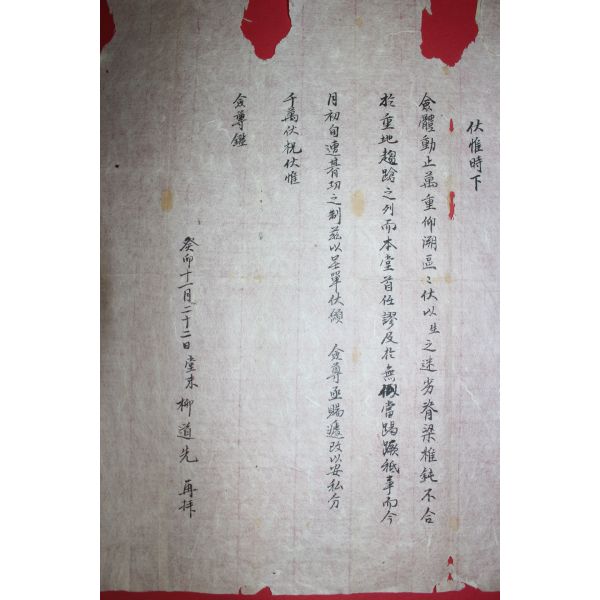 伏惟時下
僉體動止萬重仰溯區〻伏以生之迷劣脊梁椎鈍不合
於重地趨蹌之列而本堂首任謬及於無似當蹋蹶祗事而今
月初旬遭朞功之制玆以呈單伏願 僉尊亟賜遞改以安私分
千萬伏祝伏惟
僉尊鑑
癸卯十一月二十二日堂末 柳道先 再拜